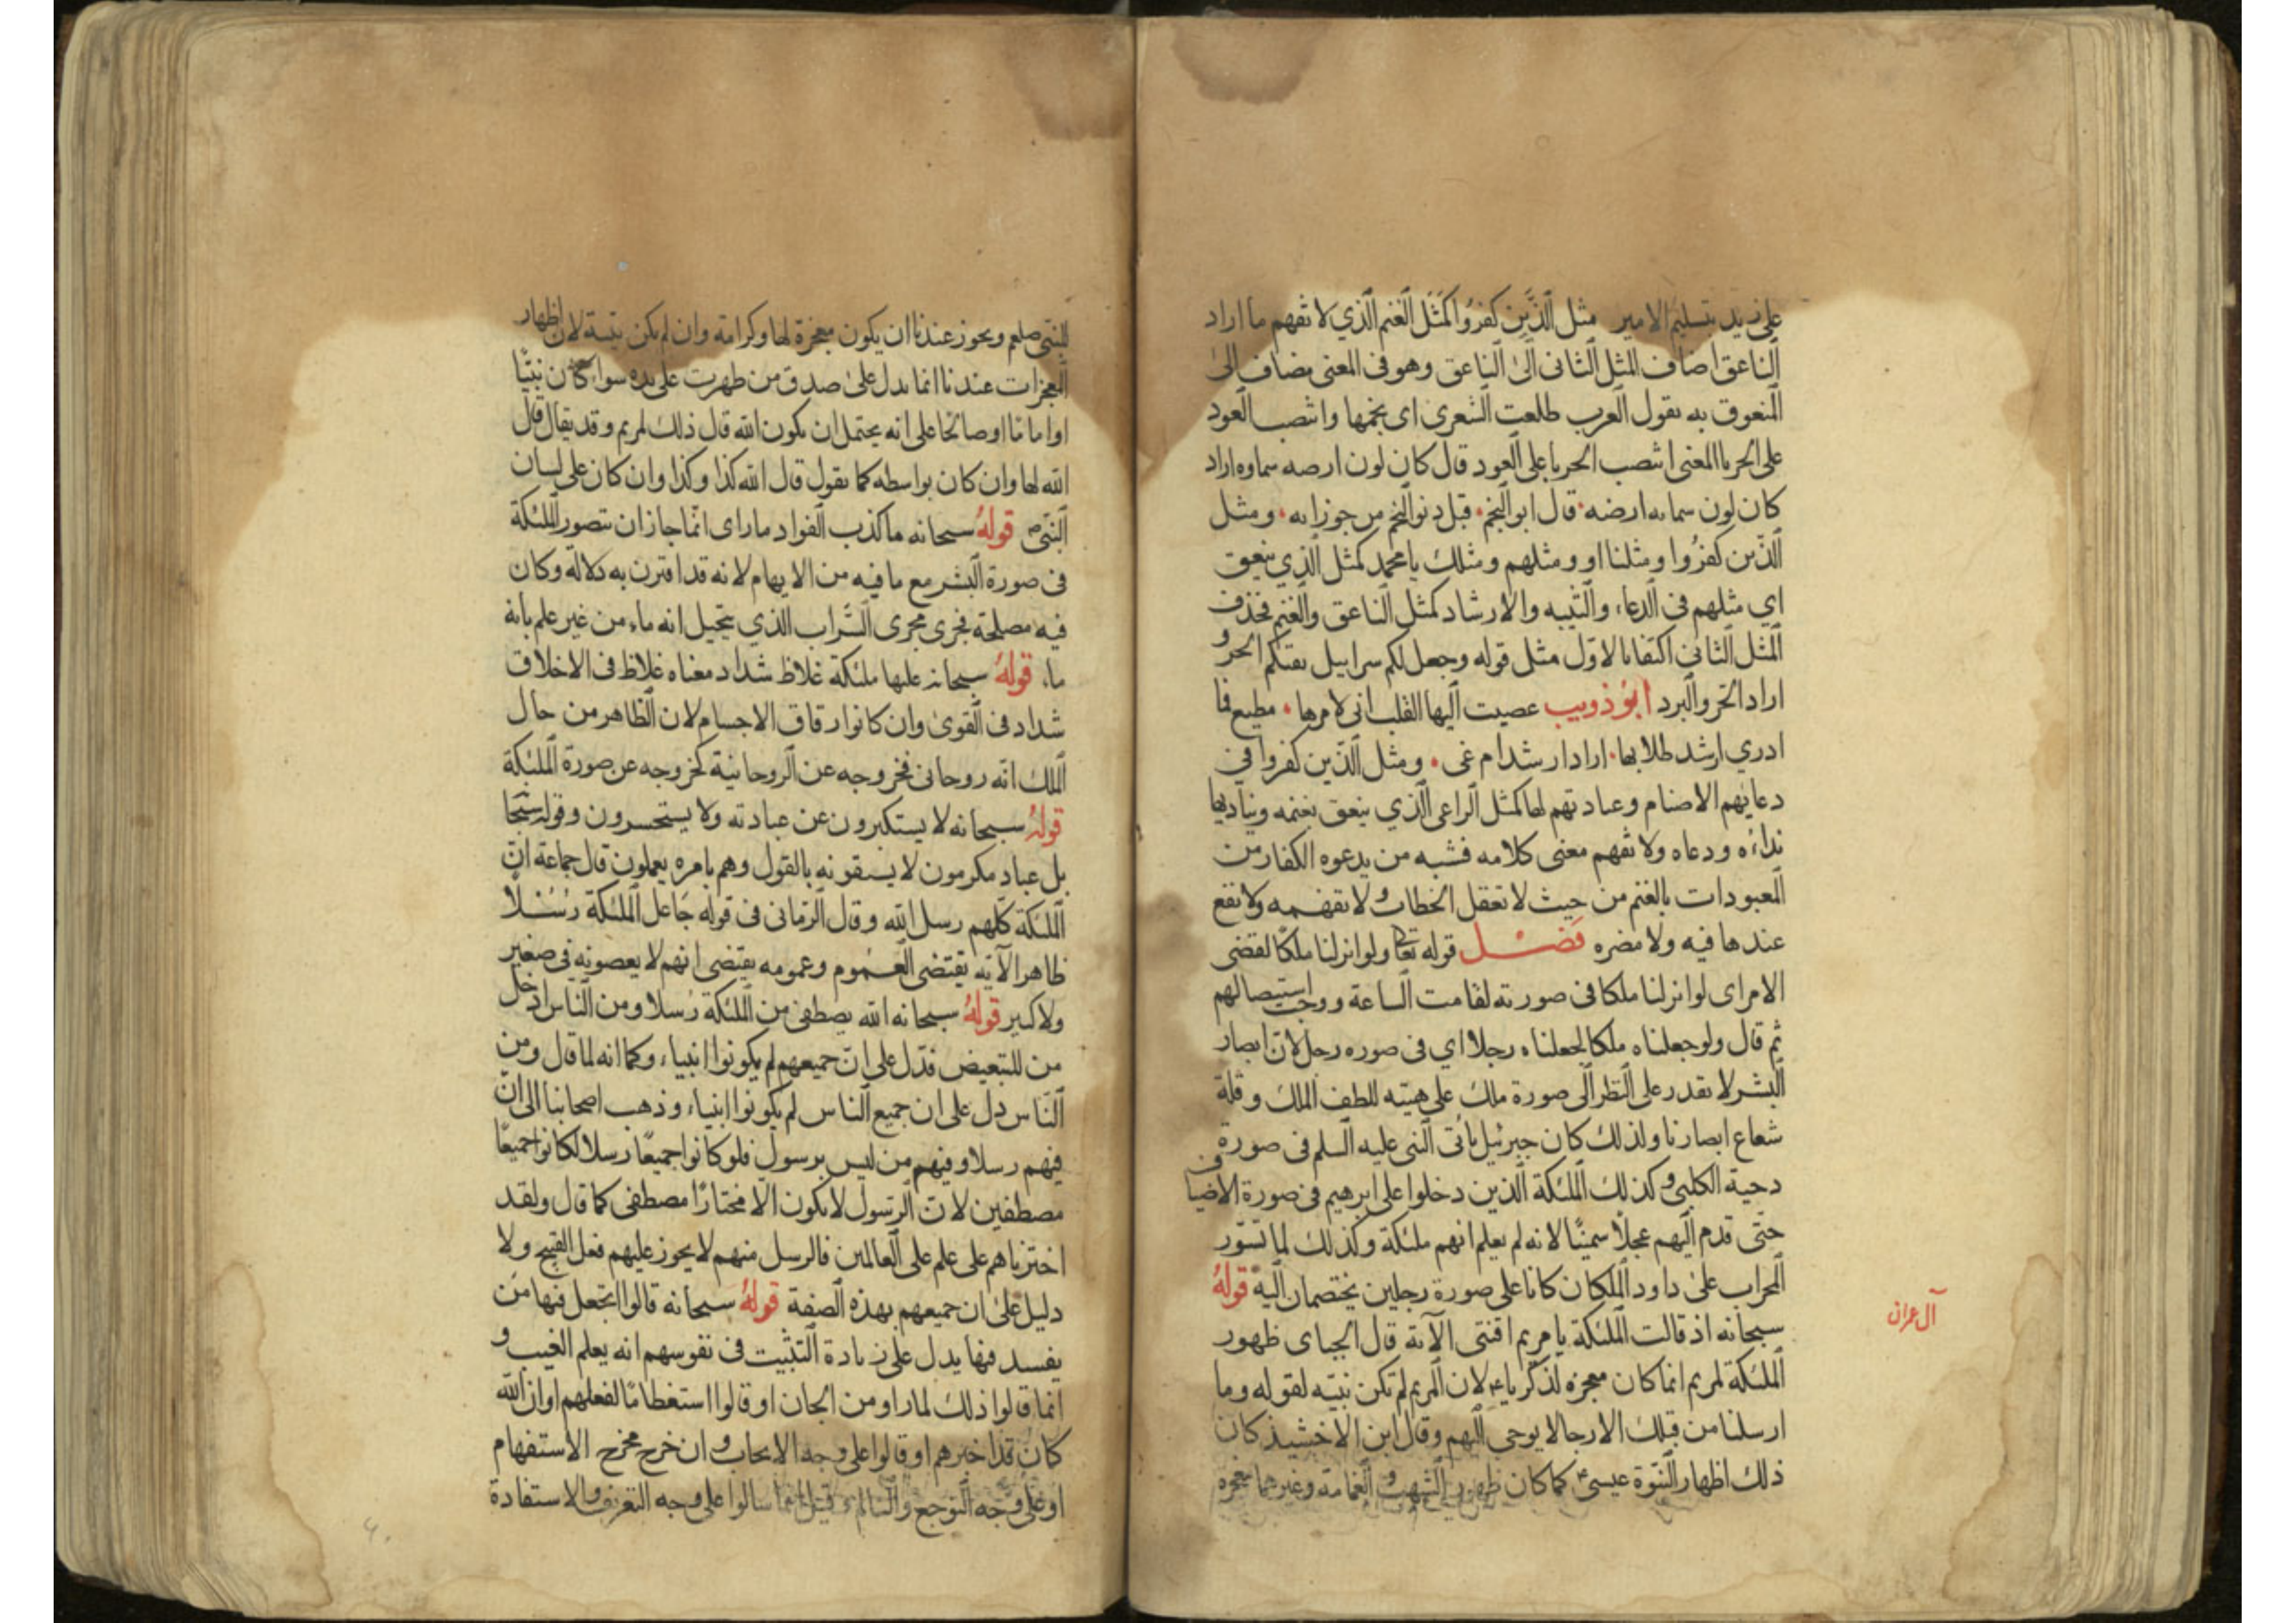 على زيد بتسليم الامير مثل الَّذين كفرُوا كمَثَل الغنم الذي لا تفهم ما اراد
الناعق اضاف المثل الثانى الى الناعق وهو فى المعنى مضاف الى
المنعوق به يقول العرب طلعت الشعرى اى نجمها وانتصب العود
على الحربا المعنى انتصب الحربا على العود قال كان لون ارضه سماوه اراد
كان لون سمائه ارضه قال ابو النجم قبل دنو النجم من جوزائه ومثل
الذين كفرُوا ومثلنا او ومثلهم ومثلك يا محمد كمثل الذي ينعق
اي مثلهم فى الدعاء والتنبيه والارشاد كمثل الناعق والغنم فحذف
المثل الثانى اكتفا بالاول مثل قوله وجعل لكم سرابيل تقيكم الحر و
اراد الحر والبرد ابوُ ذويب عصيت اليها القلب انى لامرها مطيع فما
ادري ارشد طلابها اراد ارشد ام غى ومثل الذين كفروا في
دعايهم الاصنام وعبادتهم لها كمثل الراعى الذي ينعق بغنمه ويناديها
نداءه ودعاه ولا تفهم معنى كلامه فشبه من يدعوه الكفار من
المعبودات بالغنم من حيث لا تعقل الخطاب ولا تفهمه ولا نفع
عندها فيه ولا مضره فصْل قوله تعا ولو انزلنا ملكا لقضى
الامر اى لو انزلنا ملكا فى صورته لقامت الساعة ووجب استيصالهم
ثم قال ولو جعلناه ملكا لجعلناه رجلا اي فى صوره رجل لان ابصار
البشر لا تقدر على النظر الى صورة ملك على هيئته للطف الملك وقلة
شعاع ابصارنا ولذلك كان جبرئيل ياتى النبى عليه السلم فى صورة
دحية الكلبى وكذلك الملئكة الذين دخلوا على ابرهيم فى صورة الاضياف
حتى قدم اليهم عجلاً سمينًا لانه لم يعلم انهم ملئكة وكذلك لما تسور
المحراب على داود الملكان كانا على صورة رجلين يختصمان اليه قولهُ
آل عمران
سبحانه اذ قالت الملئكة يا مريم اقنتى الآية قال الجباى ظهور
الملئكة لمريم انما كان معجزه لذكريا ء لان المريم لم تكن نبيّه لقوله وما
ارسلنا من قبلك الا رجالا يوحى اليهم وقال ابن الاخشيذ كان
ذلك اظهار النبوّة عيسى ع كما كان ظهور الشهب والغمامة وغيرهما معجزه
للنبى صلعم ويجوز عندنا ان يكون معجزة لها وكرامة وان لم يكن نبيّة لان اظهار
المعجزات عندنا انما يدل على صدق من ظهرت على يده سواء كان نبيّا
او اماما او صالحا على انه يحتمل ان يكون الله قال ذلك لمريم وقد يقال قال
الله لها وان كان بواسطه كما يقول قال الله كذا وكذا وان كان على لسان
النبىّ قولهُ سبحانه ما كذب الفواد ما راى انّما جاز ان يتصور الملئكة
فى صورة البشر مع ما فيه من الايهام لانه قد اقترن به دلالة وكان
فيه مصلحة فجرى مجرى السَّراب الذي يتخيل انه ماء من غير علم بانه
ماء قولهُ سبحانه عليها ملئكة غلاظ شداد معناه غلاظ فى الاخلاق
شداد فى القوى وان كانوا رقاق الاجسام لان الظاهر من حال
الملك انه روحانى فخروجه عن الروحانية كخروجه عن صورة الملئكة
قولهُ سبحانه لا يستكبرون عن عبادته ولا يستحسرون وقوله سبحا
بل عباد مكرمون لا يسبقونه بالقول وهم بامره يعملون قال جماعة انّ
الملئكة كلهم رسل الله وقال الرمانى فى قوله جَاعل الملئكة رُسُلاً
ظاهر الآية يقتضى العموم وعمومه يقتضى انهم لا يعصونه فى صغير
ولا كبير قولهُ سبحانه الله يصطفى من الملئكة رُسلا ومن الناس ادخل
من للتبعيض فدّل على انّ جميعهم لم يكونوا انبياء وكما انه لما قال ومن
الناس دل على ان جميع الناس لم يكونوا انبياء وذهب اصحابنا الى انّ
فيهم رسلا وفيهم من ليس برسول فلو كانوا جميعًا رسلا لكانوا جميعًا
مصطفين لانّ الرسول لا يكون الّا مختارًا مصطفى كما قال ولقد
اخترناهم على علم على العالمين فالرسل منهم لا يجوز عليهم فعل القبيح ولا
دليل على ان جميعهم بهذه الصفة قولهُ سبحانه قالوا اتجعل فيها من
يفسد فيها يدل على زيادة التثبيت فى نفوسهم انه يعلم الغيب و
انما قالوا ذلك لما راو من الجان او قالوا استعظامًا لفعلهم او ان الله
كان قد اخبرهم او قالوا على وجه الايجاب وان خرج مخرج الاستفهام
او على وجه التوجع والتالم وقيل انما سالوا على وجه التعريف والاستفادة